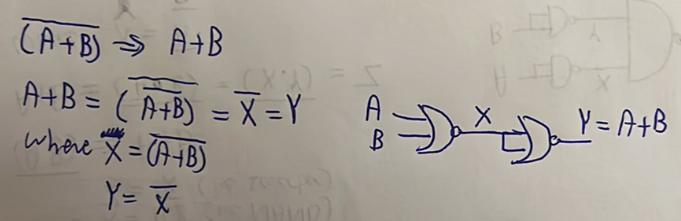 \overline{(A+B)} ⇒ A+B
A+B = \overline{(\overline{A+B})} = \overline{X} = Y
where X = \overline{(A+B)}
Y = \overline{X}
A
B
X
Y = A+B